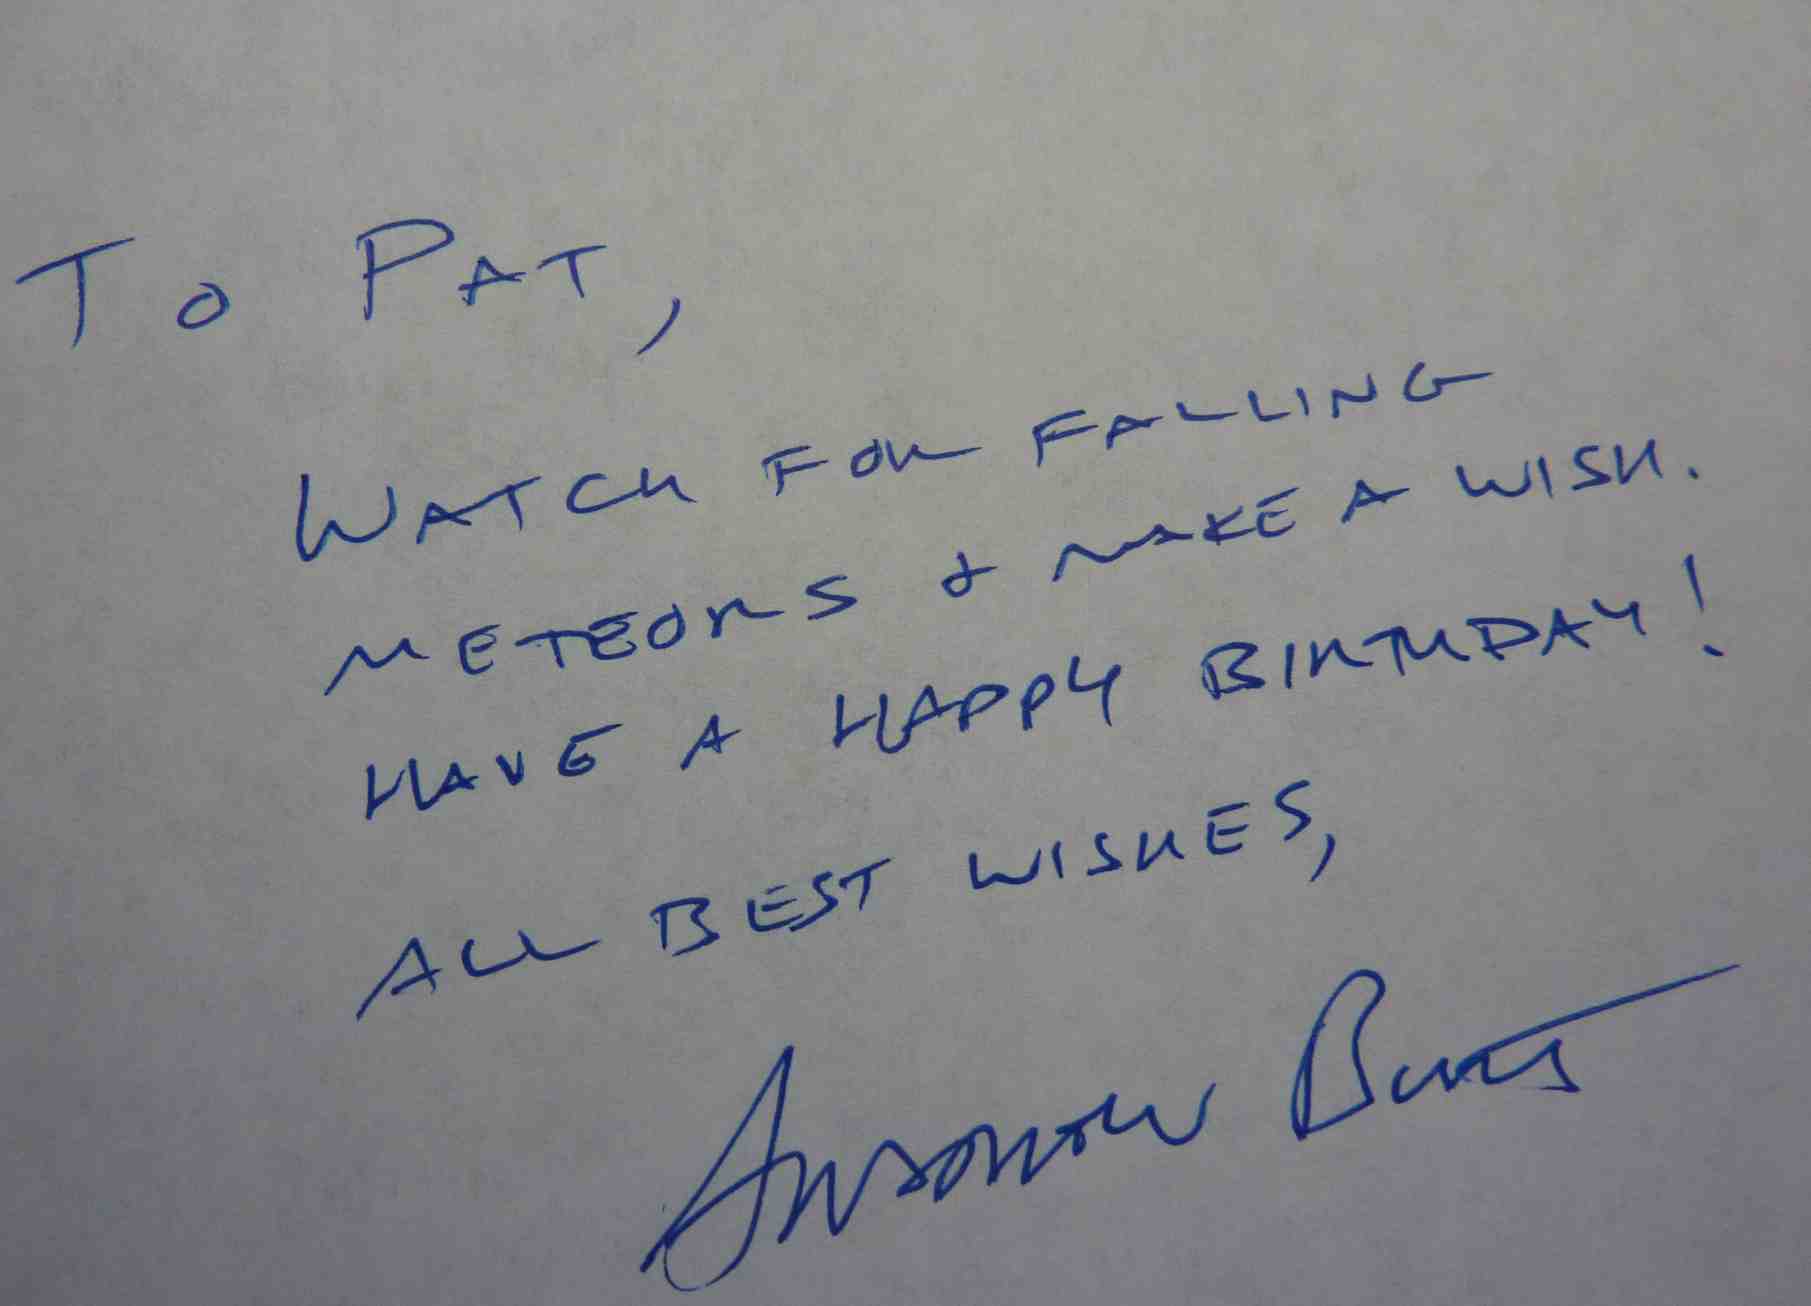 To PAT,
WATCH FOR FALLING
METEORS & MAKE A WISH.
HAVE A HAPPY BIRTHDAY!
ALL BEST WISHES,